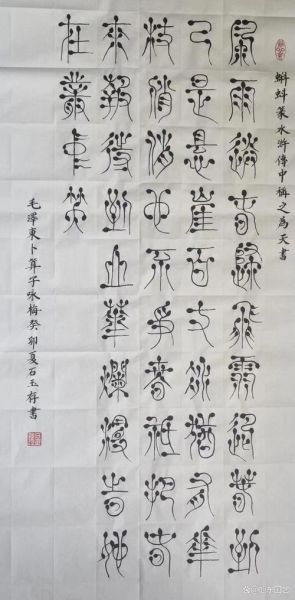 蝌蚪篆水滸傳中稱之為天書
風雨送春歸飛雪迎春到
已是懸崖百丈冰猶有華
枝俏俏也不爭春祇把春
來報待到山華爛漫時她
在叢中笑
毛澤東卜算子咏梅癸卯夏石玉存書